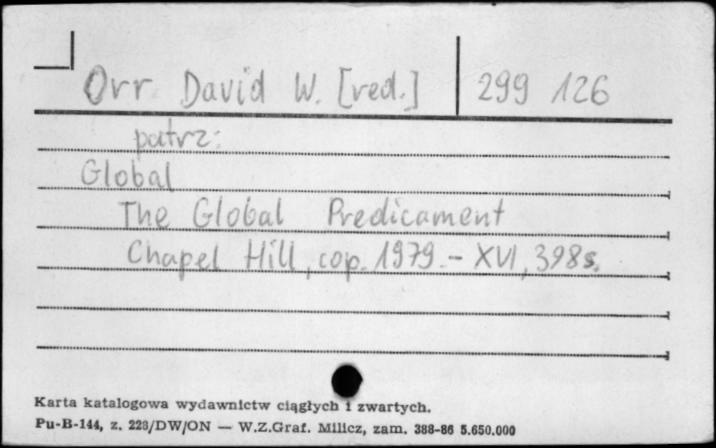 Orr David W. [red.] 299 126
patrz:
Global
The Global Predicament
Chapel Hill, cop. 1979. - XVI, 398s.
Karta katalogowa wydawnictw ciągłych i zwartych.
Pu-B-144, z. 228/DW/ON — W.Z.Graf. Milicz, zam. 388-86 5.650.000